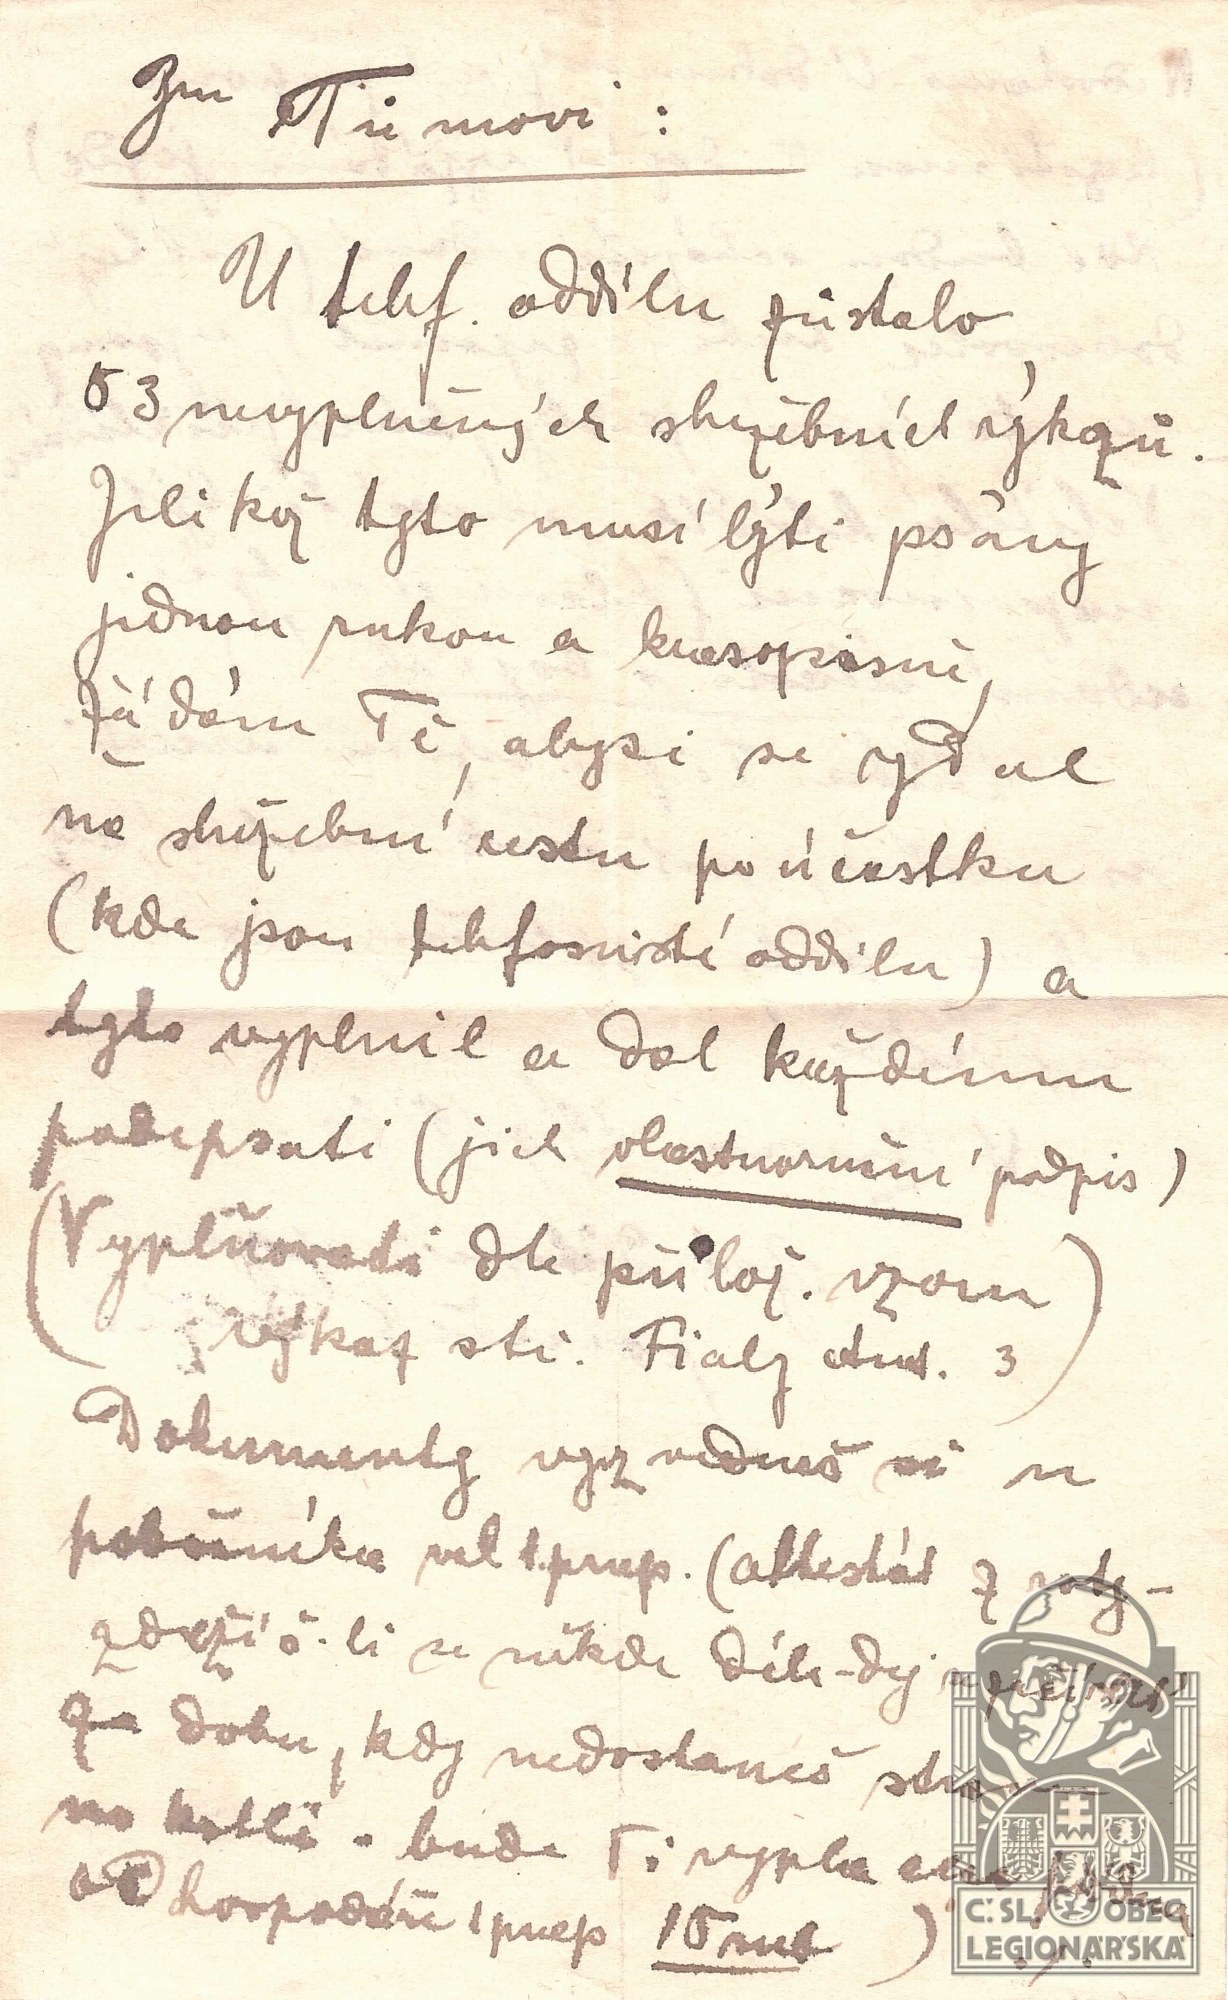 Tůmovi :
U telef. oddílu zůstalo
53 nevyplněných služebních výkazů.
Jelikož tyto musí býti psány
jednou rukou a krasopisně,
žádám Tě, abysi se vydal
na služební cestu po účastku
(kde jsou telefonisté oddílu) a
tyto vyplnil a dal každému
podepsati (jich vlastnoruční podpis)
(Vyplňovati dle přilož. vzoru
výkaz stř. Fialy 3)
Dokumenty vyzvedneš si u
pobočníka vel 1. prap. (attestát z roty -
zdržíš-li se někde déle - dej
Za dobu, kdy nedostaneš
na kotli - bude Ti
od hospodáře 1 prap 15 rub )
Č. SL. OBEC
LEGIONÁŘSKÁ